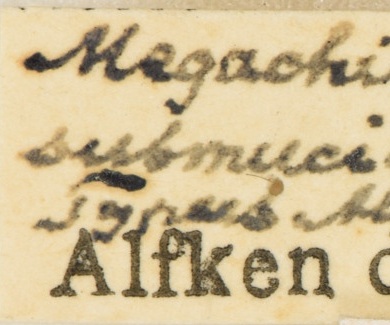 Megachi
submuci
Typus Al
Alfken d